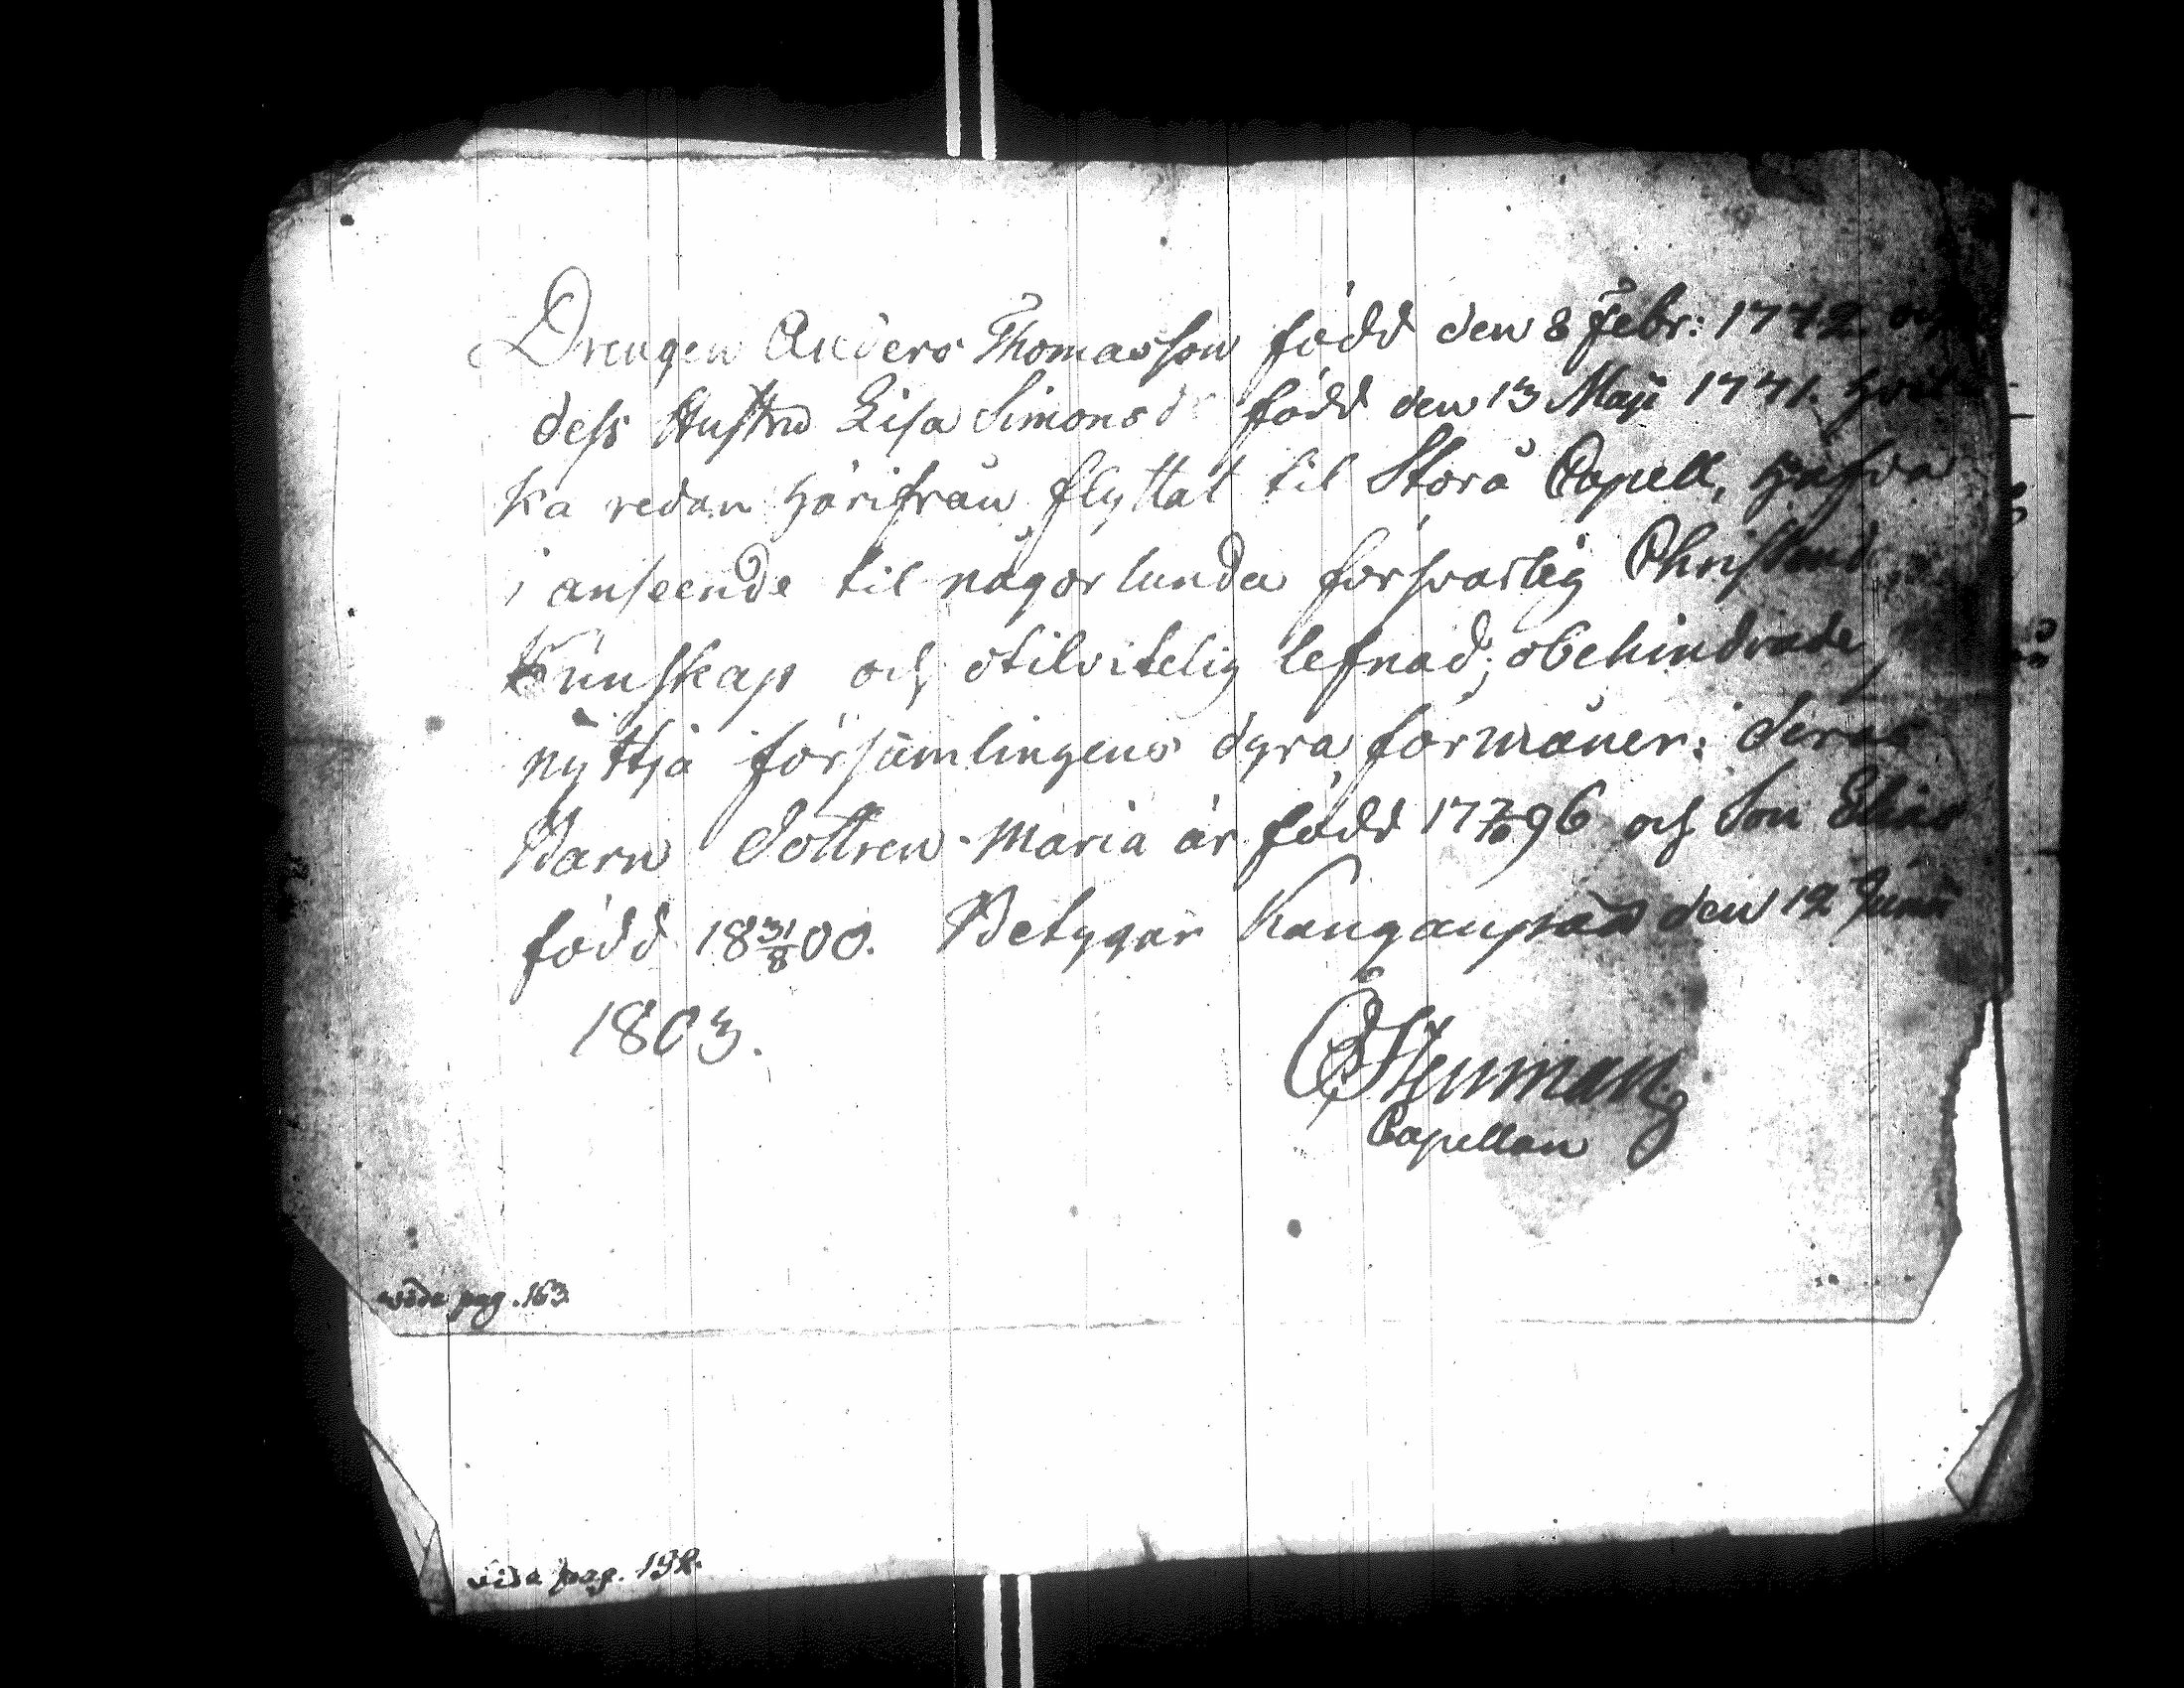 Drengen Anders Thomasson född den 8 Febr: 1772 och
dess Hustru Lisa Simonsdr född den 13 Maji 1771. hvil-
ka redan härifrån flyttat til Storå Capell, hafva
i anseende til någorlunda försvarlig Christend.
Kunskap och otilvitelig lefnad; obehindrade
nyttja församlingens dyra förmåner: deras
Barn Dottren Maria är född 17 7/10 96 och Son Elias
född 18 31/8 00. Betygar Kanganpää den 12 Junii
1803.
Stenman
Capellan
vide pag. 163.
vide pag. 192.